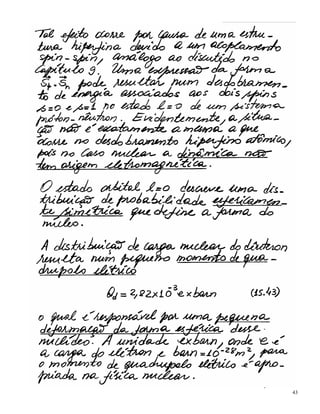 Tal efeito ocorre por causa de uma estru-
tura hiperfina devido a um acoplamento
spin-spin, análogo ao discutido no
Capítulo 9. Uma expressão da forma
S⃗p·S⃗n pode resultar num desdobramen-
to de energia associados aos dois spins
s=0 e s=1 no estado l=0 de um sistema
próton-nêutron. Evidentemente, a situa-
ção não é exatamente a mesma a que
ocorre no desdobramento hiperfino atômico,
pois no caso nuclear a dinâmica não
tem origem eletromagnética.
O estado orbital l=0 descreve uma dis-
tribuição de probabilidade esfericamen-
te simétrica que define a forma do
núcleo.
A distribuição de carga nuclear do dêuteron
resulta num pequeno momento de qua-
drupolo elétrico
Qd = 2,82x10⁻³ e x barn (15.43)
o qual é responsável por uma pequena
deformação da forma esférica desse
nuclídeo. A unidade exbarn, onde e é
a carga do elétron e barn = 10⁻²⁸ m², para
o momento de quadrupolo elétrico é apro-
priada na física nuclear.
43